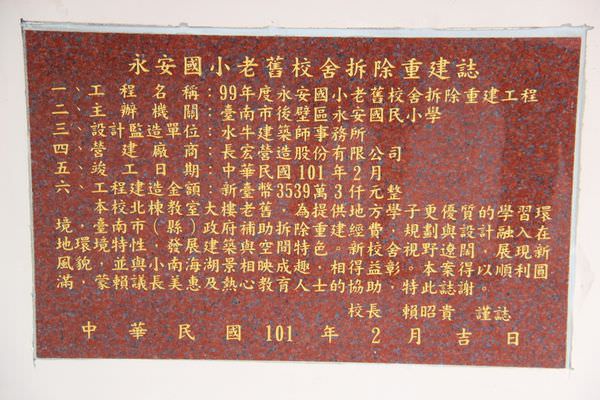 永安國小老舊校舍拆除重建誌
一、工程名稱：99年度永安國小老舊校舍拆除重建工程
二、主辦機關：臺南市後壁區永安國民小學
三、設計監造單位：水牛建築師事務所
四、營建廠商：長宏營造股份有限公司
五、竣工日期：中華民國101年2月
六、工程建造金額：新臺幣3539萬3仟元整
本校北棟教室大樓老舊，為提供地方學子更優質的學習環
境，臺南市（縣）政府補助拆除重建經費，規劃與設計融入在
地環境特性，發展建築空間特色。新校舍視野遼闊，展現新
風貌，並與小南海湖景相映成趣，相得益彰。本案得以順利圓
滿，蒙賴議長美惠及熱心教育人士的協助，特此誌謝。
校長　賴昭貴　謹誌
中華民國101年2月吉日